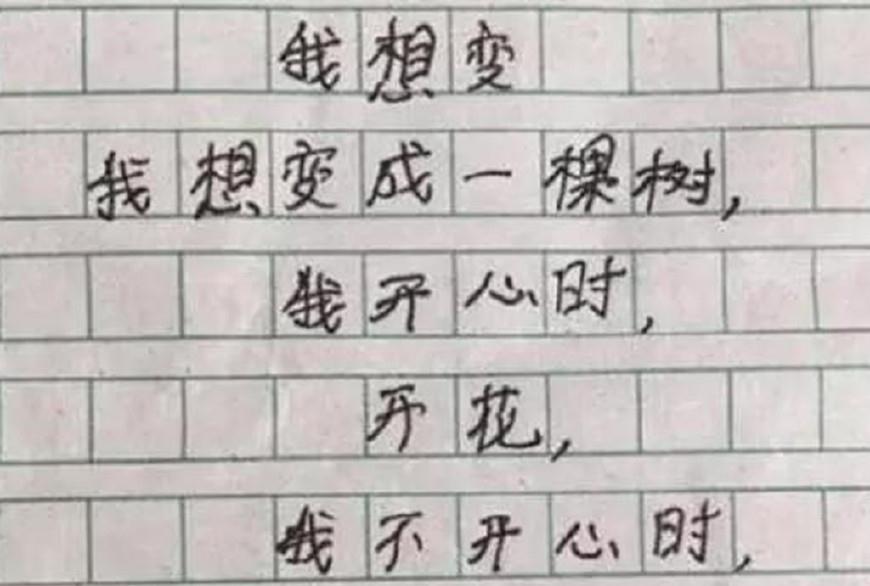 我想变
我想变成一棵树,
我开心时,
开花,
我不开心时,